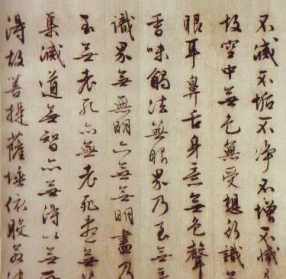 不滅不垢不淨不增不減
故空中無色無受想行識
眼耳鼻舌身意無色聲
香味觸法無眼界乃至無
識界無無明亦無無明盡乃
至無老死亦無老死盡無
集滅道無智亦無得以無
得故菩提薩埵依般若